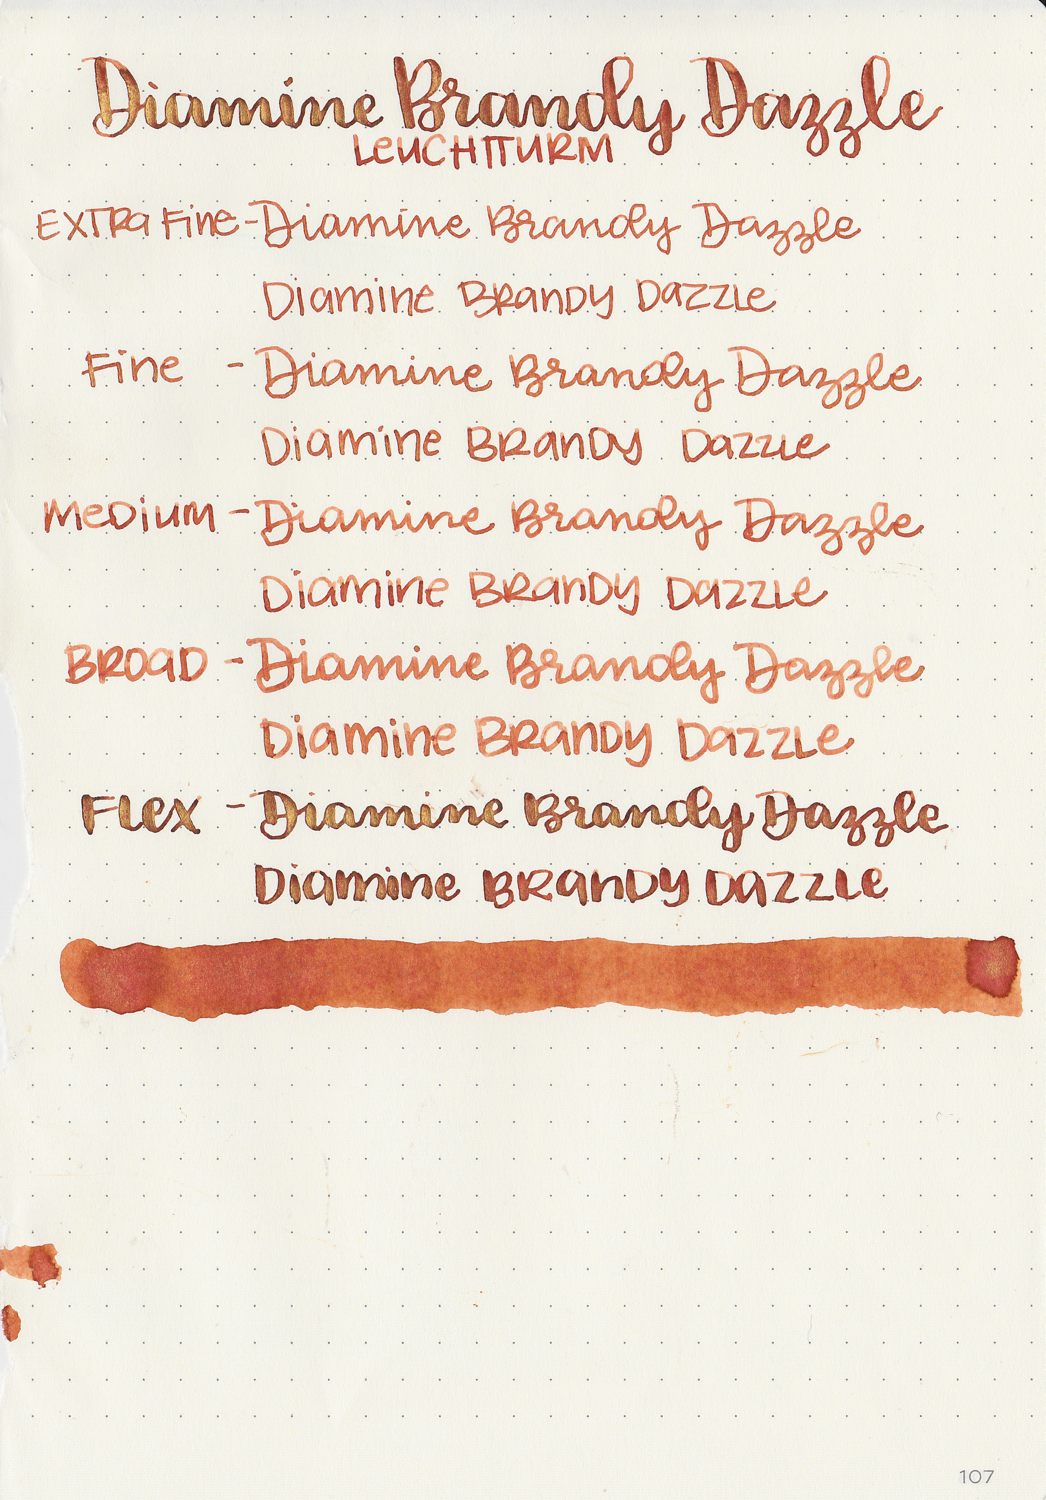 Diamine Brandy Dazzle
LEUCHTTURM
EXTRA FINE - Diamine Brandy Dazzle
Diamine BRANDY DAZZLE
Fine - Diamine Brandy Dazzle
Diamine BRANDY DAZZLE
MEDIUM - Diamine Brandy Dazzle
Diamine BRANDY DAZZLE
BROAD - Diamine Brandy Dazzle
Diamine BRANDY DAZZLE
FLEX - Diamine Brandy Dazzle
Diamine BRANDY DAZZLE
107